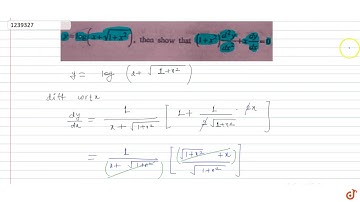 1239327
y = log (x + √1+x²), then show that (1+x²) d²y/dx² + x dy/dx = 0
y = log (x + √1+x²)
diff w.r.t x
dy/dx = 1/(x + √1+x²) [ 1 + 1/(2√1+x²) · 2x ]
= 1/(x + √1+x²) [ (√1+x² + x)/√1+x² ]